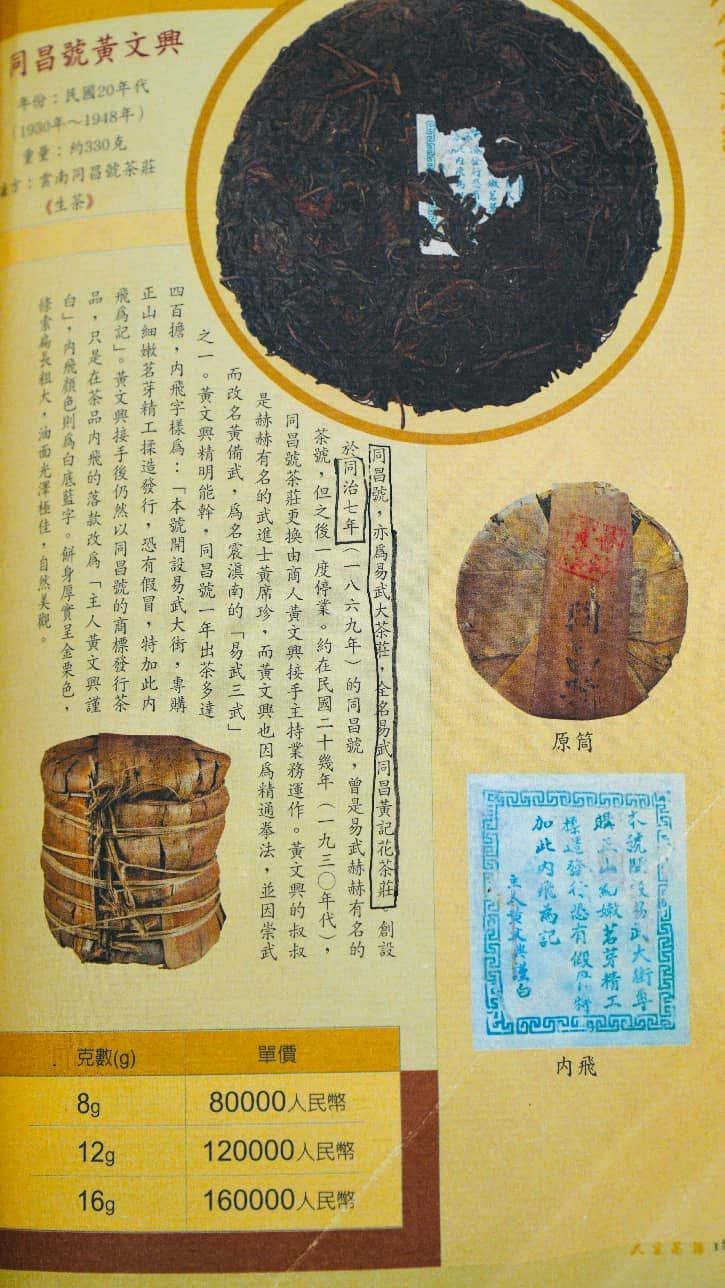 同昌號黃文興
年份：民國20年代
（1930年～1948年）
重量：約330克
方：雲南同昌號茶莊
《生茶》
同昌號，亦為易武大茶莊，全名易武同昌黃記花茶莊。創設
於同治七年（一八六九年）的同昌號，曾是易武赫赫有名的
茶號，但之後一度停業。約在民國二十幾年（一九三〇年代），
同昌號茶莊更換由商人黃文興接手主持業務運作。黃文興的叔叔
是赫赫有名的武進士黃席珍，而黃文興也因為精通拳法，並因崇武
而改名黃備武，為名震滇南的「易武三武」
之一。黃文興精明能幹，同昌號一年出茶多達
四百擔，內飛字樣為：「本號開設易武大街，專購
正山細嫩茗芽精工揉造發行，恐有假冒，特加此內
飛為記」。黃文興接手後仍然以同昌號的商標發行茶
品，只是在茶品內飛的落款改為「主人黃文興謹
白」，內飛顏色則為白底藍字。餅身厚實呈金栗色，
條索扁長粗大，油面光澤極佳，自然美觀。
原筒
本號開設易武大街專
購正山細嫩茗芽精工
揉造發行恐有假冒特
加此內飛為記
主人黃文興謹白
內飛
克數(g)
單價
8g
80000人民幣
12g
120000人民幣
16g
160000人民幣